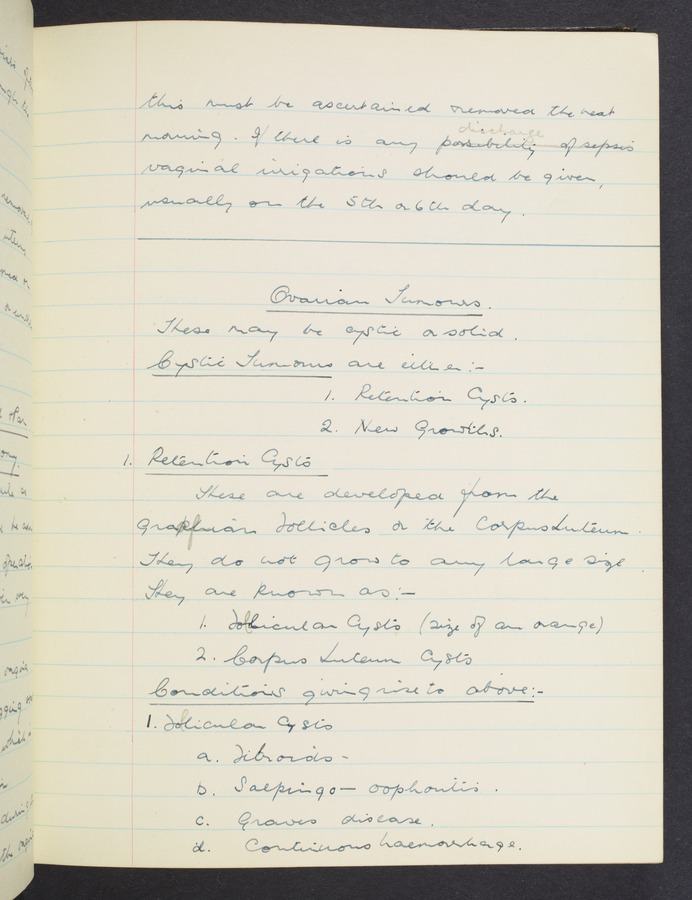 this must be ascertained removed the next
morning. If there is any possibility of sepsis
discharge
vaginal irrigations should be given,
usually on the 5th or 6th day.
Ovarian Tumours.
These may be cystic or solid.
Cystic Tumours are either:-
1. Retention Cysts.
2. New Growths.
1. Retention Cysts
These are developed from the
graafian follicles or the Corpus Luteum.
They do not grow to any large size.
They are known as:-
1. Follicular Cysts (size of an orange)
2. Corpus Luteum Cysts
Conditions giving rise to above:-
1. Follicular Cysts
a. Fibroids -
b. Salpingo - oophoritis.
c. Graves disease.
d. Continuous haemorrhage.